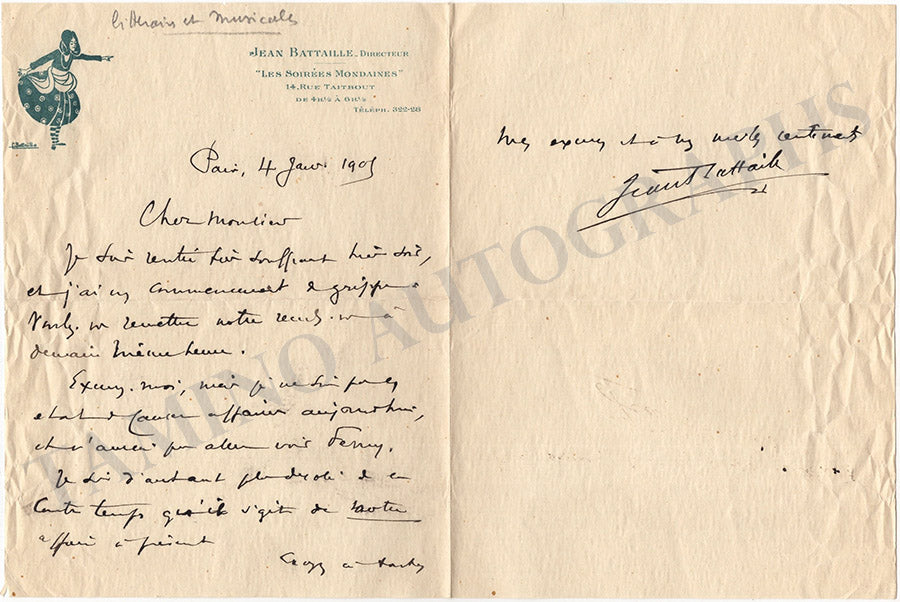 littéraires et musicales
JEAN BATTAILLE_DIRECTEUR
"LES SOIRÉES MONDAINES"
14, RUE TAITBOUT
DE 4H½ À 6H½
TÉLÉPH. 322-28
Paris, 4 Janv. 1905
Cher Monsieur
Je suis rentré très souffrant hier soir,
et j'ai un commencement de grippe.
Voulez-vous remettre notre rendez-vous à
demain même heure.
Excusez-moi, mais je ne suis pas en
état de causer affaires aujourd'hui,
et n'aurai pu aller voir
Je suis d'autant plus désolé de ce
contretemps qu'il s'agit de notre
affaire à présent
Croyez à toutes
mes excuses et à mes meilleurs sentiments
Jean Battaille
TAMINO AUTOGRAPHS